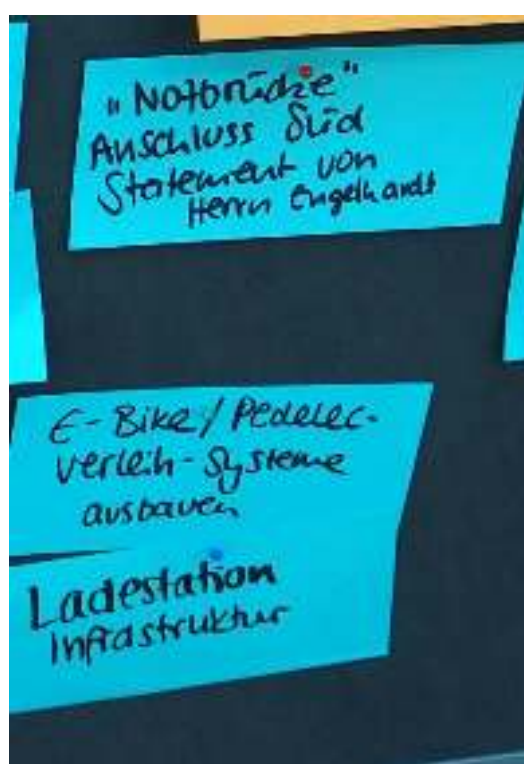 "Notbrücke"
Anschluss Süd
Statement von
Herrn Engelhardt
E-Bike/Pedelec-
verleih-Systeme
ausbauen
Ladestation
Infrastruktur